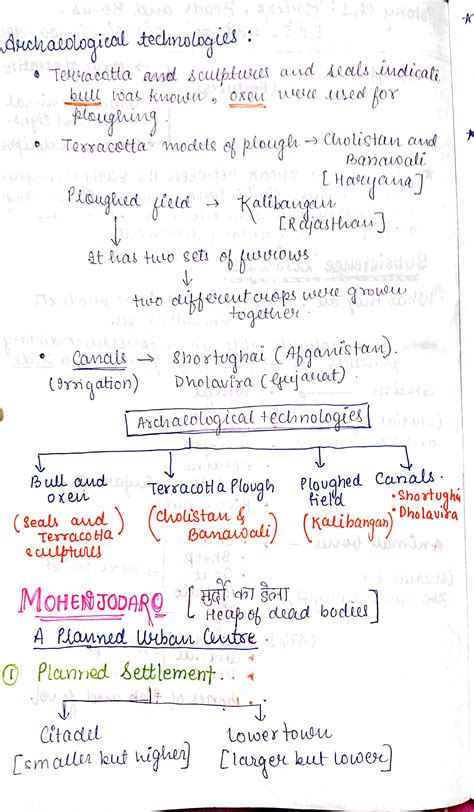 Archaeological technologies :
• Terracotta and sculptures and seals indicati
bull was known, oxen were used for
ploughing.
• Terracotta models of plough → Cholistan and
Banawali
[Haryana]
Ploughed field → Kalibangan
[Rajasthan]
It has two sets of furrows
two different crops were grown
together.
• Canals → Shortughai (Afganistan).
(Irrigation) Dholavira (Gujarat).
Archaeological technologies
Bull and oxen
(Seals and Terracotta sculptures
Terracotta Plough
(Cholistan & Banawali)
Ploughed field
(Kalibangan)
Canals.
• Shortughi
• Dholavira
MOHENJODARO [मुर्दो का डेला
Heap of dead bodies]
A Planned Urban Centre.
① Planned Settlement.
Citadel
[smaller but higher]
Lower town
[larger but lower]